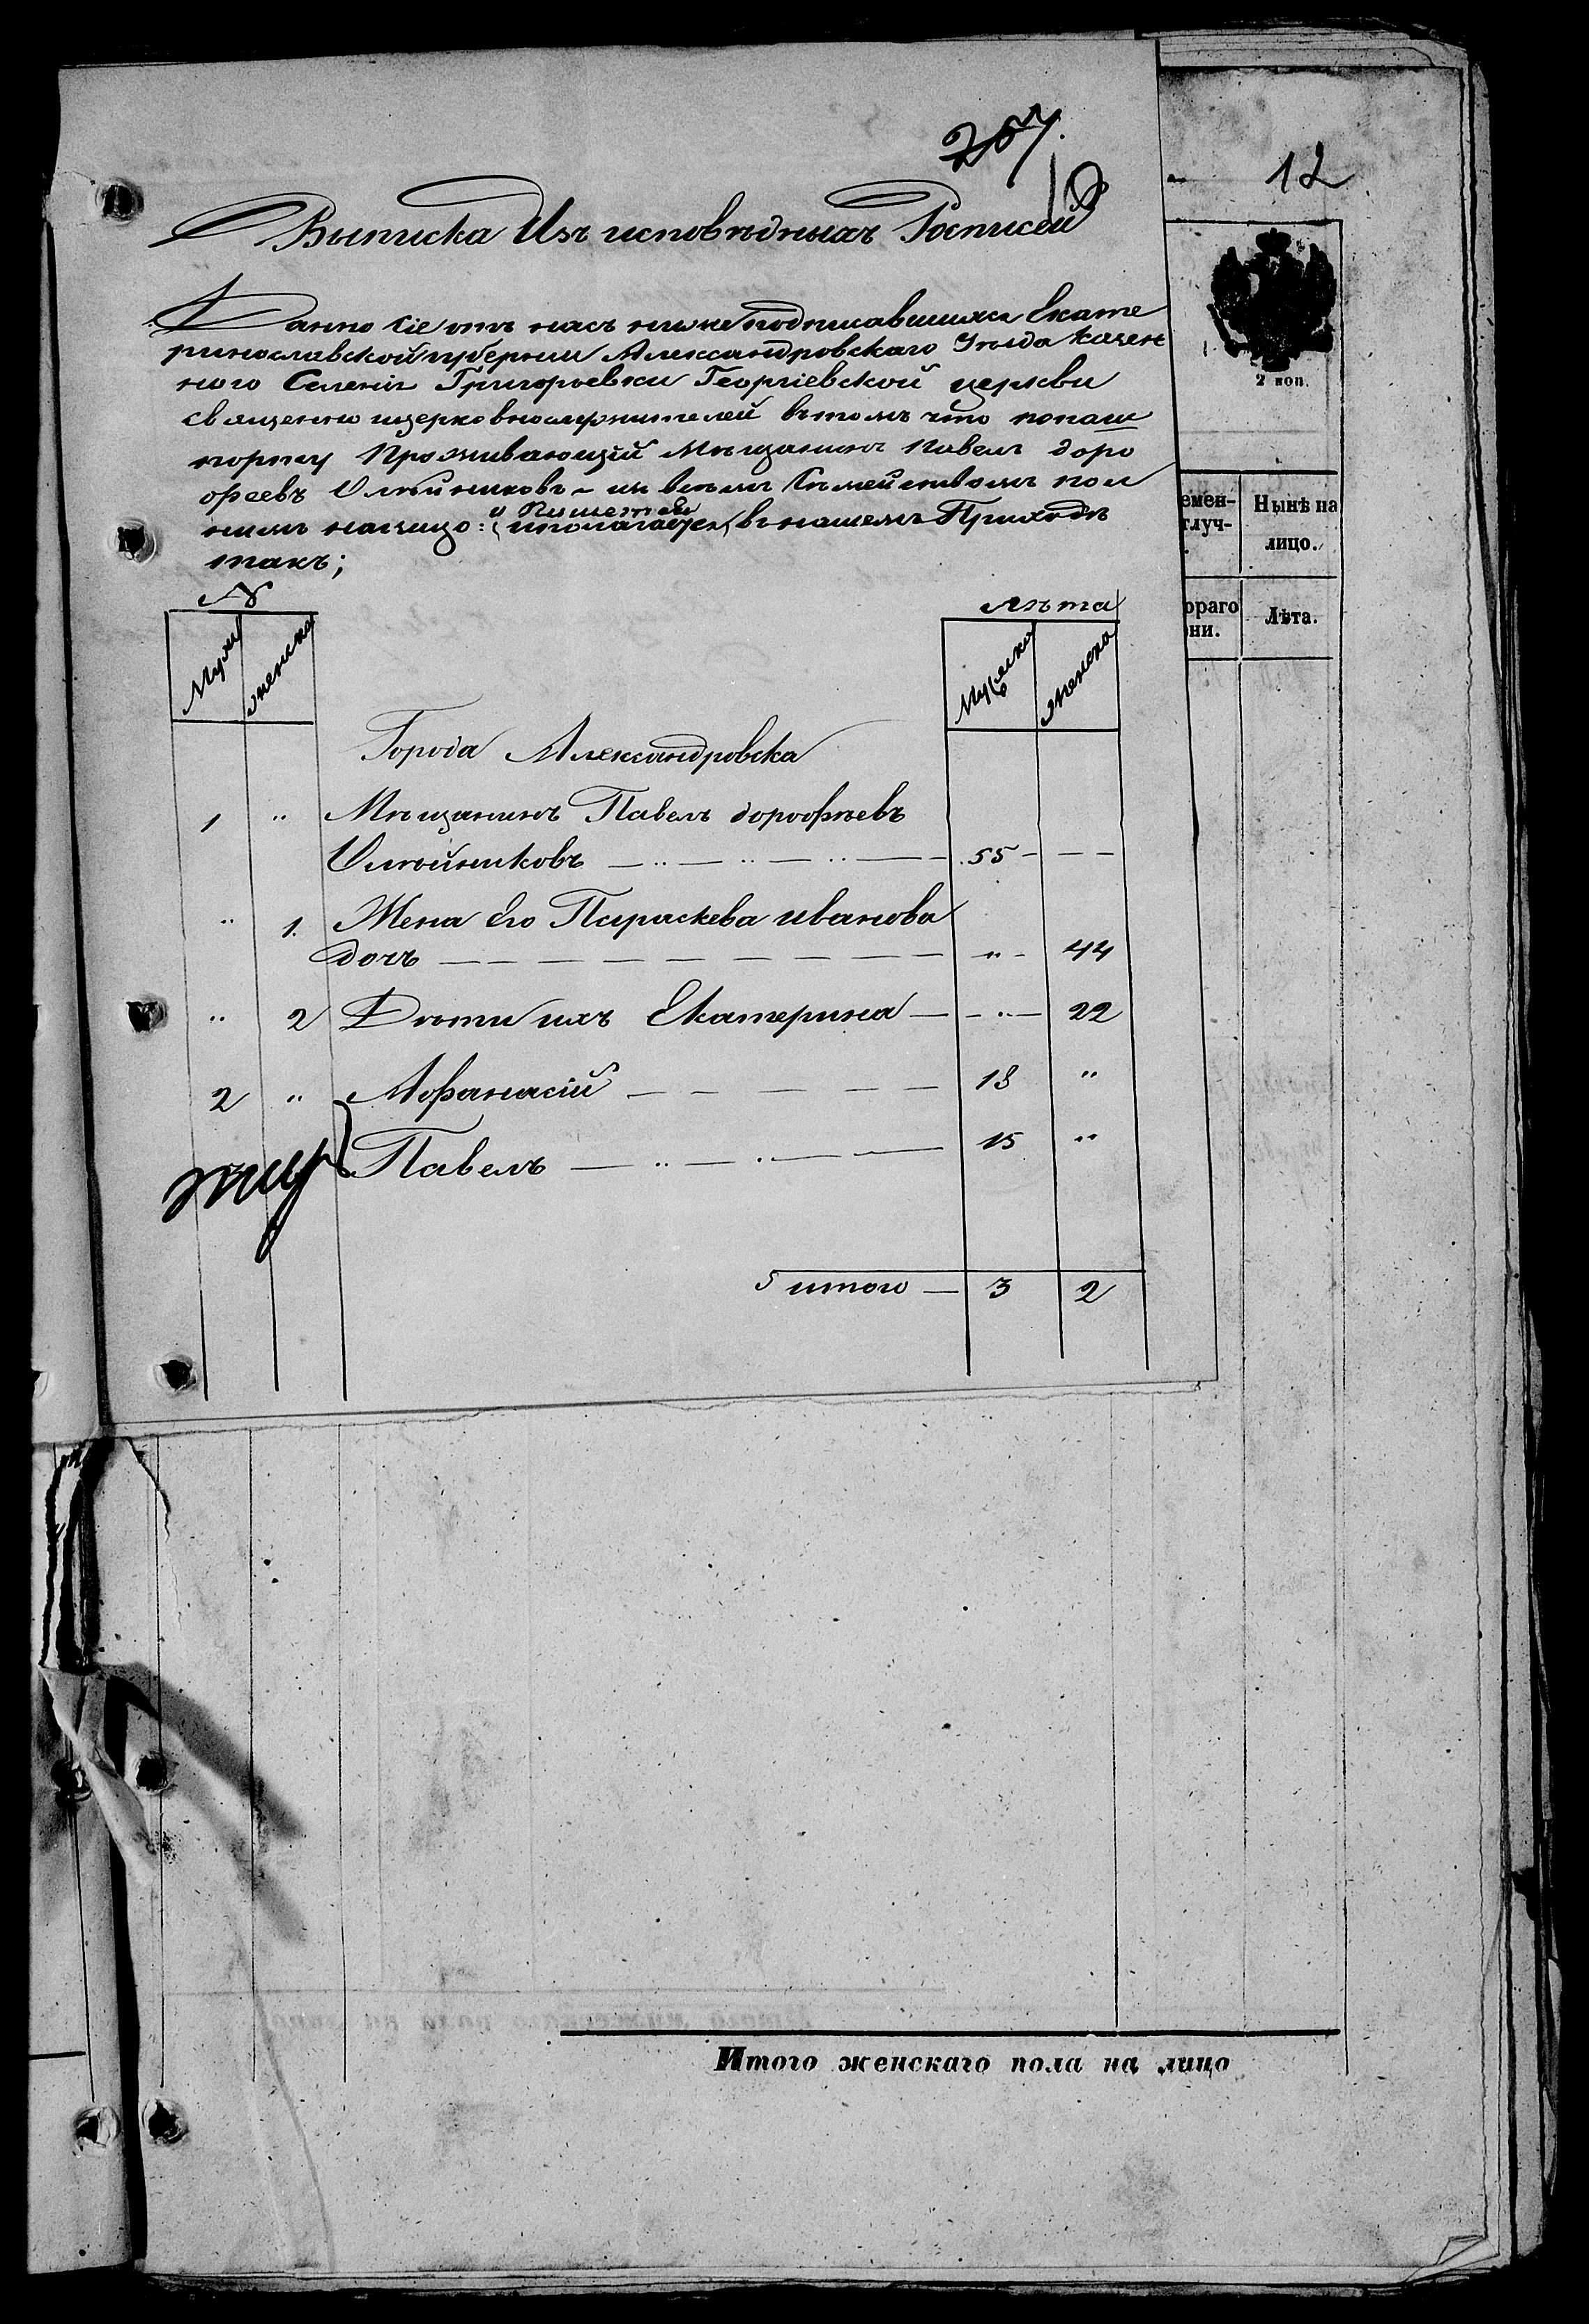 257.
12
Выписка Изъ исповѣдныхъ Росписей
Данно сіе отъ насъ нижеподписавшихся Екате
ринославской губерніи Александровскаго Уѣзда казен
ного Селенія Григорьевки Георгіевской церкви
священно и церковнослужителей вътомъ что попаш
порту Проживающій Мѣщанинъ Павелъ доро
феевъ Олѣйниковъ - и въсѣмъ Сѣмействомъ пои
нимъ налицо: и Пишется
исполагается въ нашемъ Приходѣ
такъ;
2 коп.
емен-
глуч-
Нынѣ на
лицо.
ораго
ни.
Лѣта.
№
Лѣта
Муж женска
Мужеска женска
Города Александровска
1 " Мѣщанинъ Павелъ дорофѣевъ
Олѣйниковъ 55
" 1. Жена Его Параскева иванова
дочъ " 44
" 2 Дѣти ихъ Екатерина " 22
2 " Афанасій 18 "
Павелъ 15 "
5 итого 3 2
Итого женскаго пола на лицо